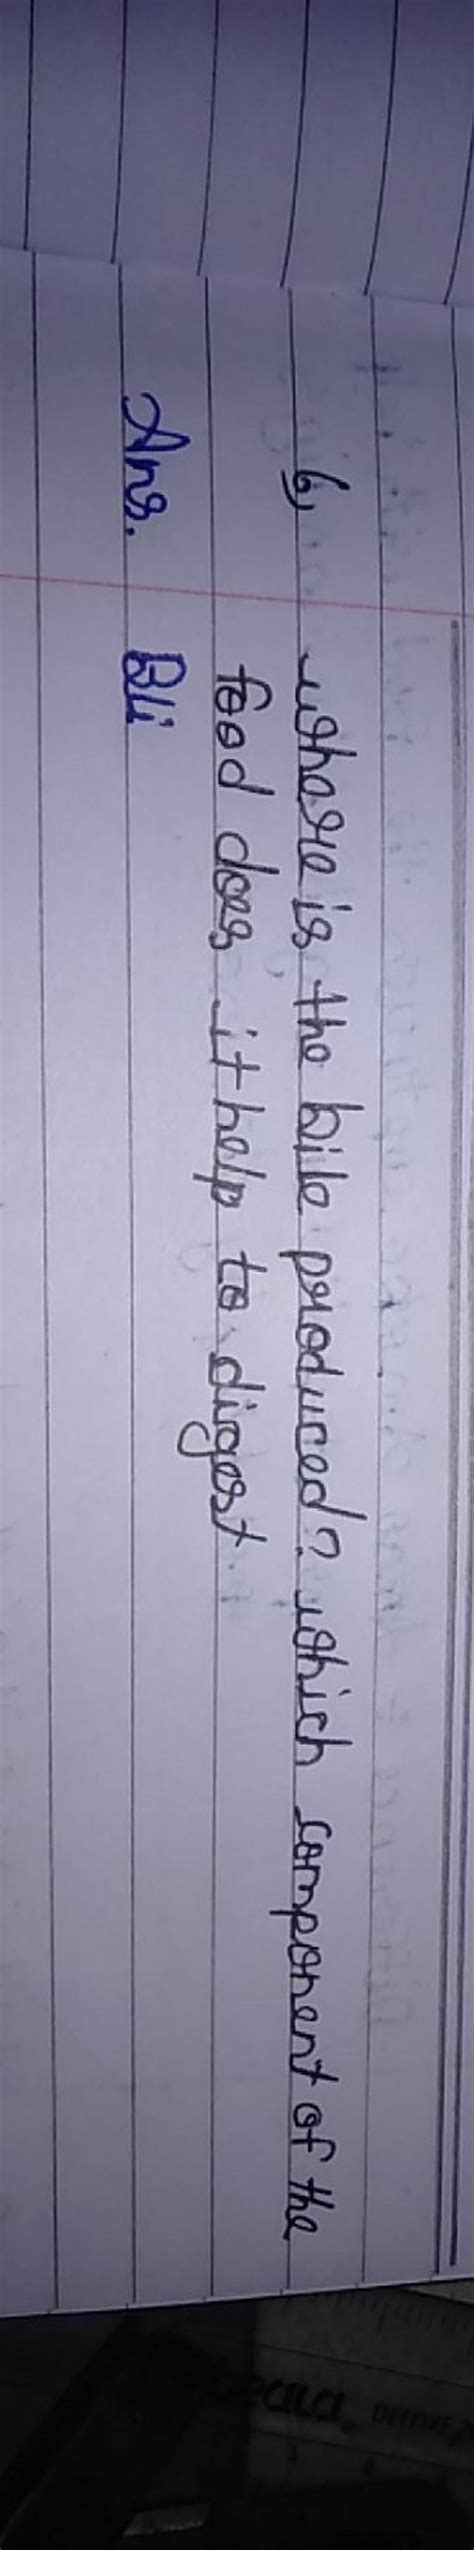 6) where is the bile produced? which component of the
food does it help to digest
Ans. Bli